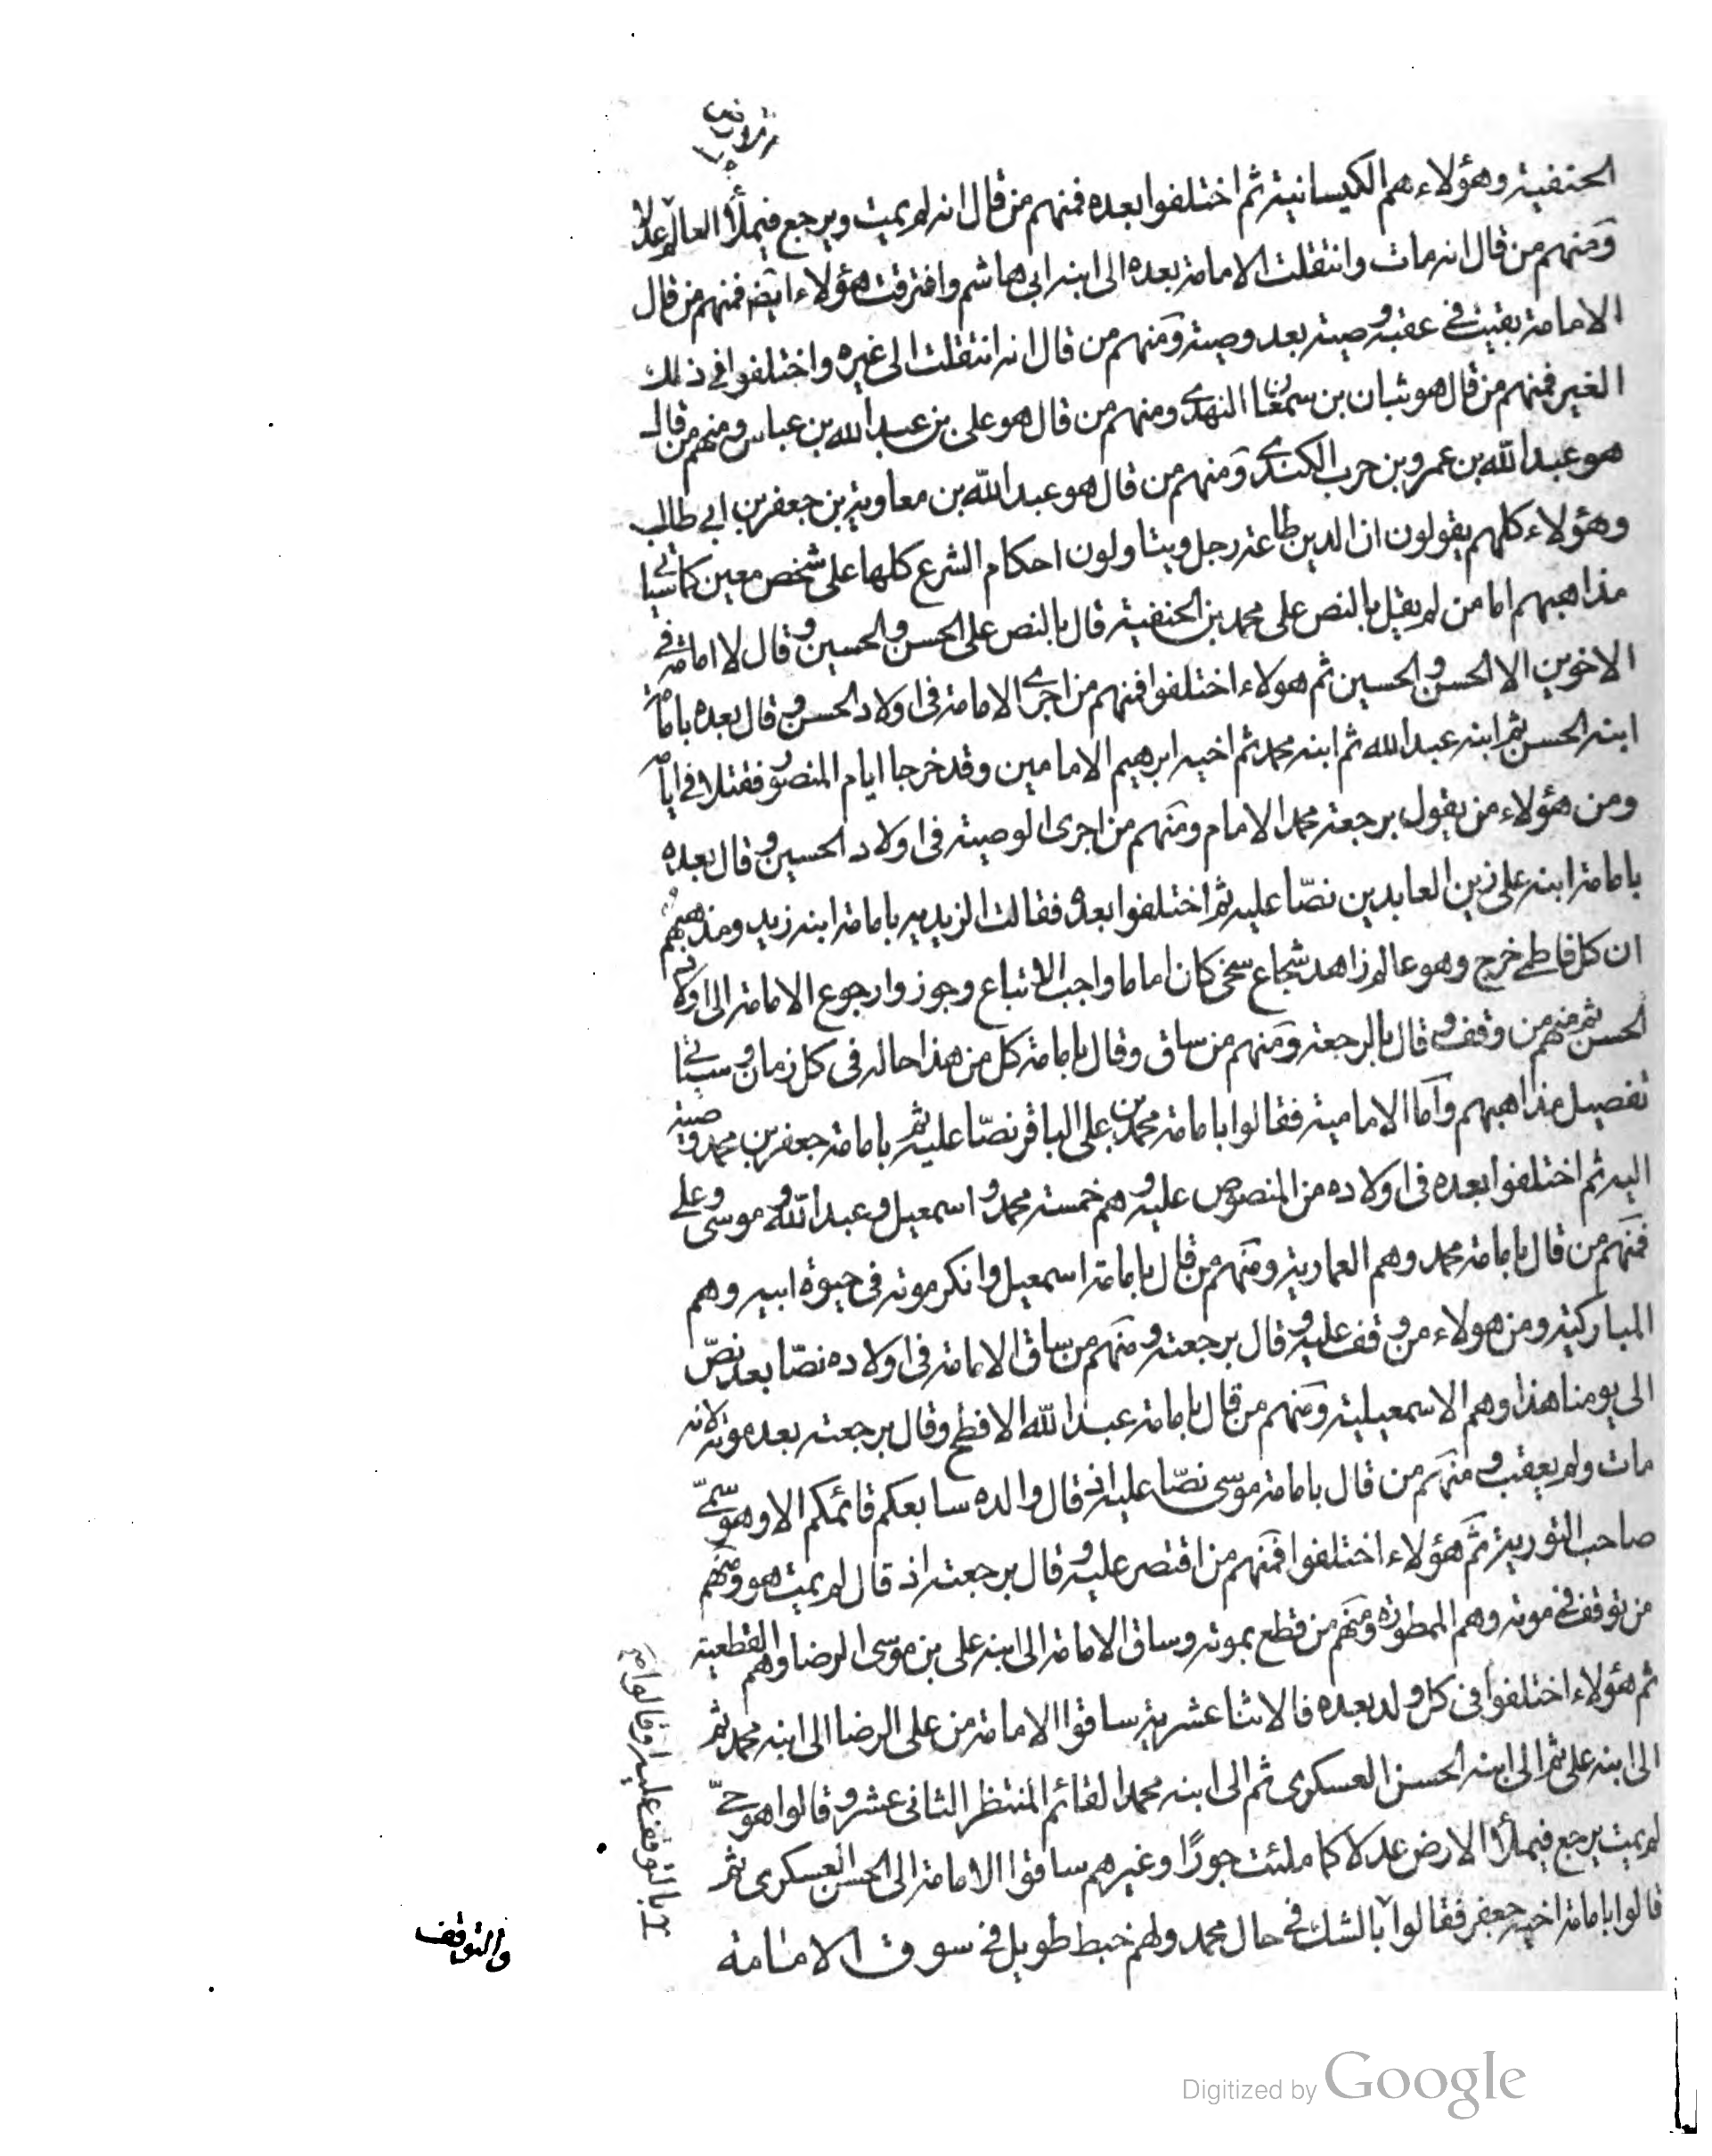 الحنفية وهؤلاء هم الكيسانية ثم اختلفوا بعده فمنهم من قال انه لم يمت ويرجع فيملأ العالم عدلا
ومنهم من قال انه مات وانتقلت الامامة بعده الى ابنه ابى هاشم وافترقت هؤلاء ايضا فمنهم من قال
الامامة بقيت في عقبه وصية بعد وصية ومنهم من قال انه انتقلت الى غيره واختلفوا في ذلك
الغير فمنهم من قال هو شبان بن سمعان النهدى ومنهم من قال هو على بن عبد الله بن عباس ومنهم من قال
هو عبد الله بن عمرو بن حرب الكندى ومنهم من قال هو عبد الله بن معاوية بن جعفر بن ابي طالب
وهؤلاء كلهم يقولون ان الدين طاعة رجل ويتاولون احكام الشرع كلها على شخص معين كما سياتي
مذاهبهم اما من لم يقل بالنص على محمد بن الحنفية قال بالنص على الحسن والحسين وقال لا امامة في
الاخوين الا الحسن والحسين ثم هولاء اختلفوا فمنهم من اجرى الامامة فى اولاد الحسن وقال بعده بامامة
ابنه الحسن ثم ابنه عبد الله ثم ابنه محمد ثم اخيه ابرهيم الامامين وقد خرجا ايام المنصور فقتلا في ايامه
ومن هؤلاء من يقول برجعة محمد الامام ومنهم من اجرى الوصية فى اولاد الحسين وقال بعده
بامامة ابنه على زين العابدين نصّا عليه ثم اختلفوا بعده فقالت الزيديه بامامة ابنه زيد ومذهبهم
ان كل فاطمى خرج وهو عالم زاهد شجاع سخى كان اماما واجب الاتباع وجوزوا رجوع الامامة الى اولاد
الحسن ثم منهم من وقف وقال بالرجعة ومنهم من ساق وقال بامامة كل من هذا حاله فى كل زمان وسياتي
تفصيل مذاهبهم وأما الامامية فقالوا بامامة محمد بن على الباقر نصّا عليه ثم بامامة جعفر بن محمد وصية
اليه ثم اختلفوا بعده فى اولاده من المنصوص عليه وهم خمسة محمد واسمعيل وعبد الله وموسى وعلى
فمنهم من قال بامامة محمد وهم العمارية ومنهم من قال بامامة اسمعيل وانكر موته فى حيوة ابيه وهم
المباركية ومن هولاء من وقف عليه وقال برجعته ومنهم من ساق الامامة فى اولاده نصّا بعد نصّ
الى يومنا هذا وهم الاسمعيلية ومنهم من قال بامامة عبد الله الافطح وقال برجعته بعد موته لانه
مات ولم يعقب ومنهم من قال بامامة موسى نصّا عليه اذ قال والده سابعكم قائمكم الا وهو سمىّ
صاحب التورية ثم هؤلاء اختلفوا فمنهم من اقتصر عليه وقال برجعته اذ قال لم يمت هو ومنهم
من توقف في موته وهم الممطورة ومنهم من قطع بموته وساق الامامة الى ابنه على بن موسى الرضا وهم القطعية
ثم هؤلاء اختلفوا فى كل ولد بعده فالاثنا عشرية ساقوا الامامة من على الرضا الى ابنه محمد ثم
الى ابنه على ثم الى ابنه الحسن العسكرى ثم الى ابنه محمد القائم المنتظر الثانى عشر وقالوا هو حىّ
لم يمت يرجع فيملأ الارض عدلا كما ملئت جورًا وغيرهم ساقوا الامامة الى الحسن العسكرى ثم
قالوا بامامة اخيه جعفر فقالوا بالشك في حال محمد ولهم خبط طويل في سوق الامامة
بالتوقف عليه وقالوا
والتوقف
Digitized by Google